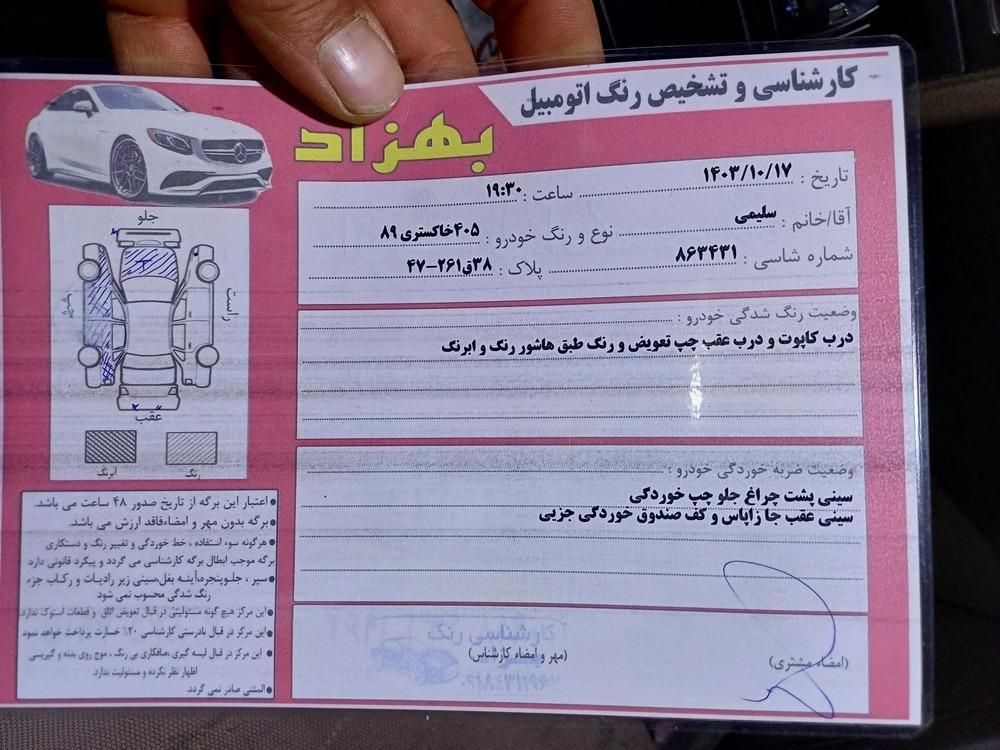 کارشناسی و تشخیص رنگ اتومبیل
بهزاد
تاریخ : ۱۴۰۳/۱۰/۱۷ ساعت : ۱۹:۳۰
آقا/خانم : سلیمی نوع و رنگ خودرو : ۴۰۵خاکستری ۸۹
شماره شاسی : ۸۶۳۴۳۱ پلاک : ۳۸ق۲۶۱-۴۷
وضعیت رنگ شدگی خودرو :
درب کاپوت و درب عقب چپ تعویض و رنگ طبق هاشور رنگ و ابرنگ
وضعیت ضربه خوردگی خودرو :
سینی پشت چراغ جلو چپ خوردگی
سینی عقب جا زاپاس و کف صندوق خوردگی جزیی
کارشناسی رنگ
(مهر و امضاء کارشناس)
(امضاء مشتری)
جلو
راست
عقب
رنگ
آبرنگ
● اعتبار این برگه از تاریخ صدور ۴۸ ساعت می باشد.
● برگه بدون مهر و امضاءفاقد ارزش می باشد.
● هرگونه سوء استفاده ، خط خوردگی و تغییر رنگ و دستکاری
برگه موجب ابطال برگه کارشناسی می گردد و پیگرد قانونی دارد
● سپر ، جلوپنجره،آینه بغل،سینی زیر رادیات و رکاب جزء
رنگ شدگی محسوب نمی شود
● این مرکز هیچ گونه مسئولیتی در قبال تعویض اتاق و قطعات استوک ندارد.
● این مرکز در قبال نادرستی کارشناسی ۲۰٪ خسارت پرداخت خواهد نمود
● این مرکز در قبال لیسه گیری ،صافکاری بی رنگ ، موج روی بدنه و گیریسی
اظهار نظر نکرده و مسئولیت ندارد.
● المثنی صادر نمی گردد.